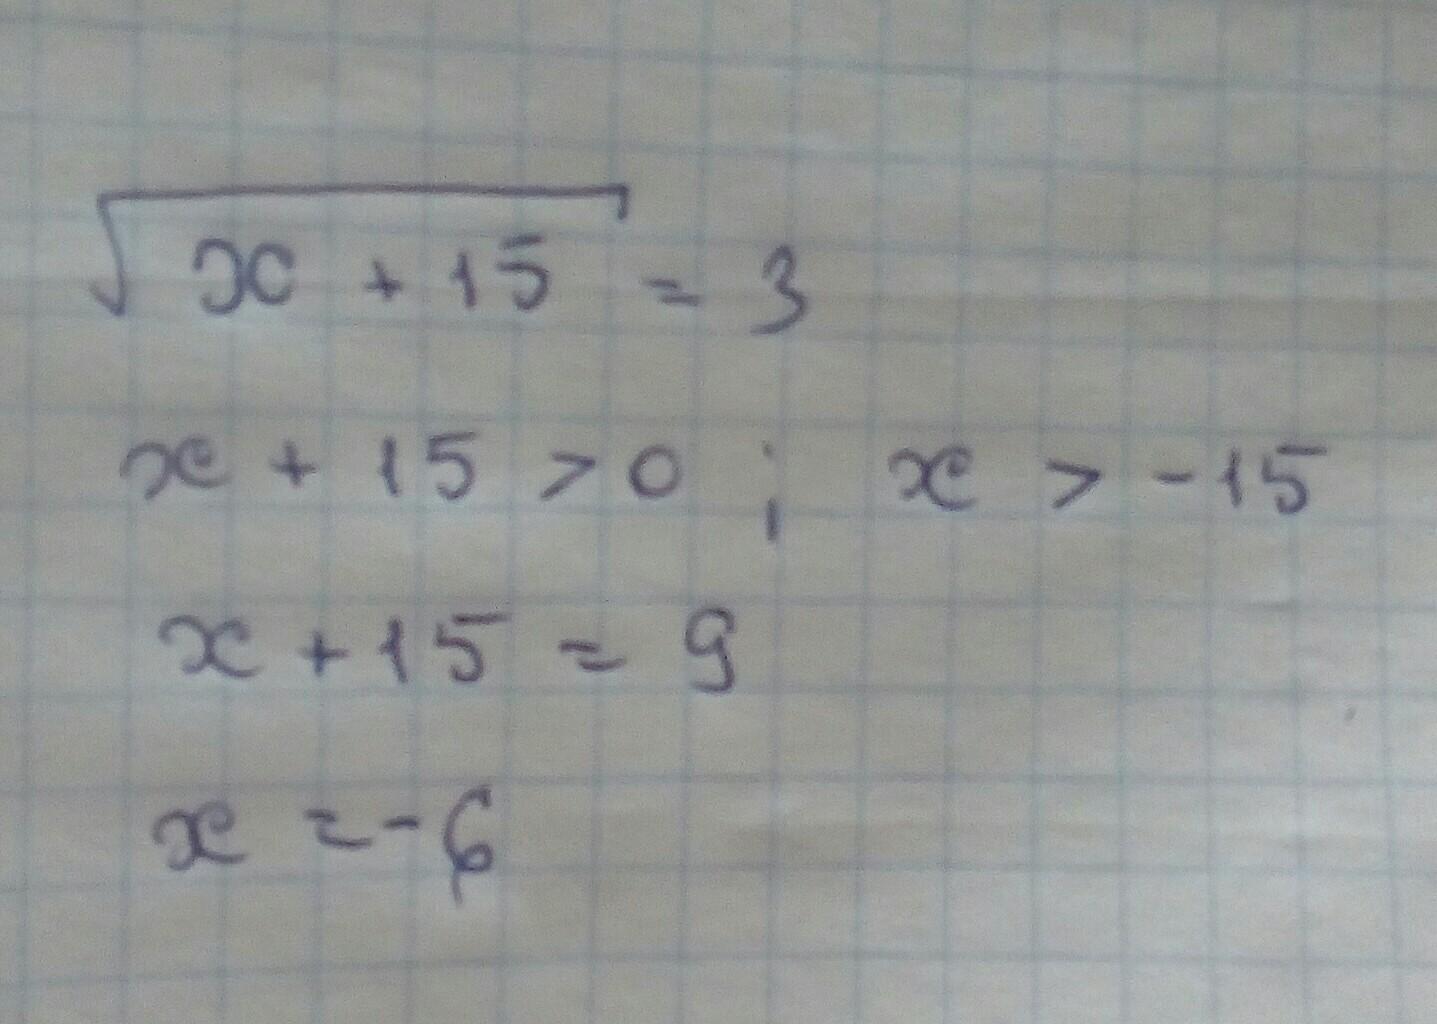 √(x + 15) = 3
x + 15 > 0 ; x > -15
x + 15 = 9
x = -6